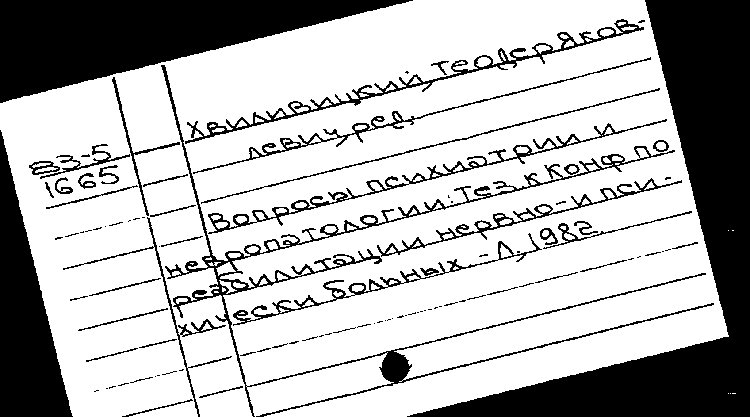 Хвиливицкий, Теодор Яков-
левич, ред.
83-5
1665
Вопросы психиатрии и
невропатологии: Тез. к Конф по
реабилитации нервно- и пси-
хически больных. - Л, 1982.